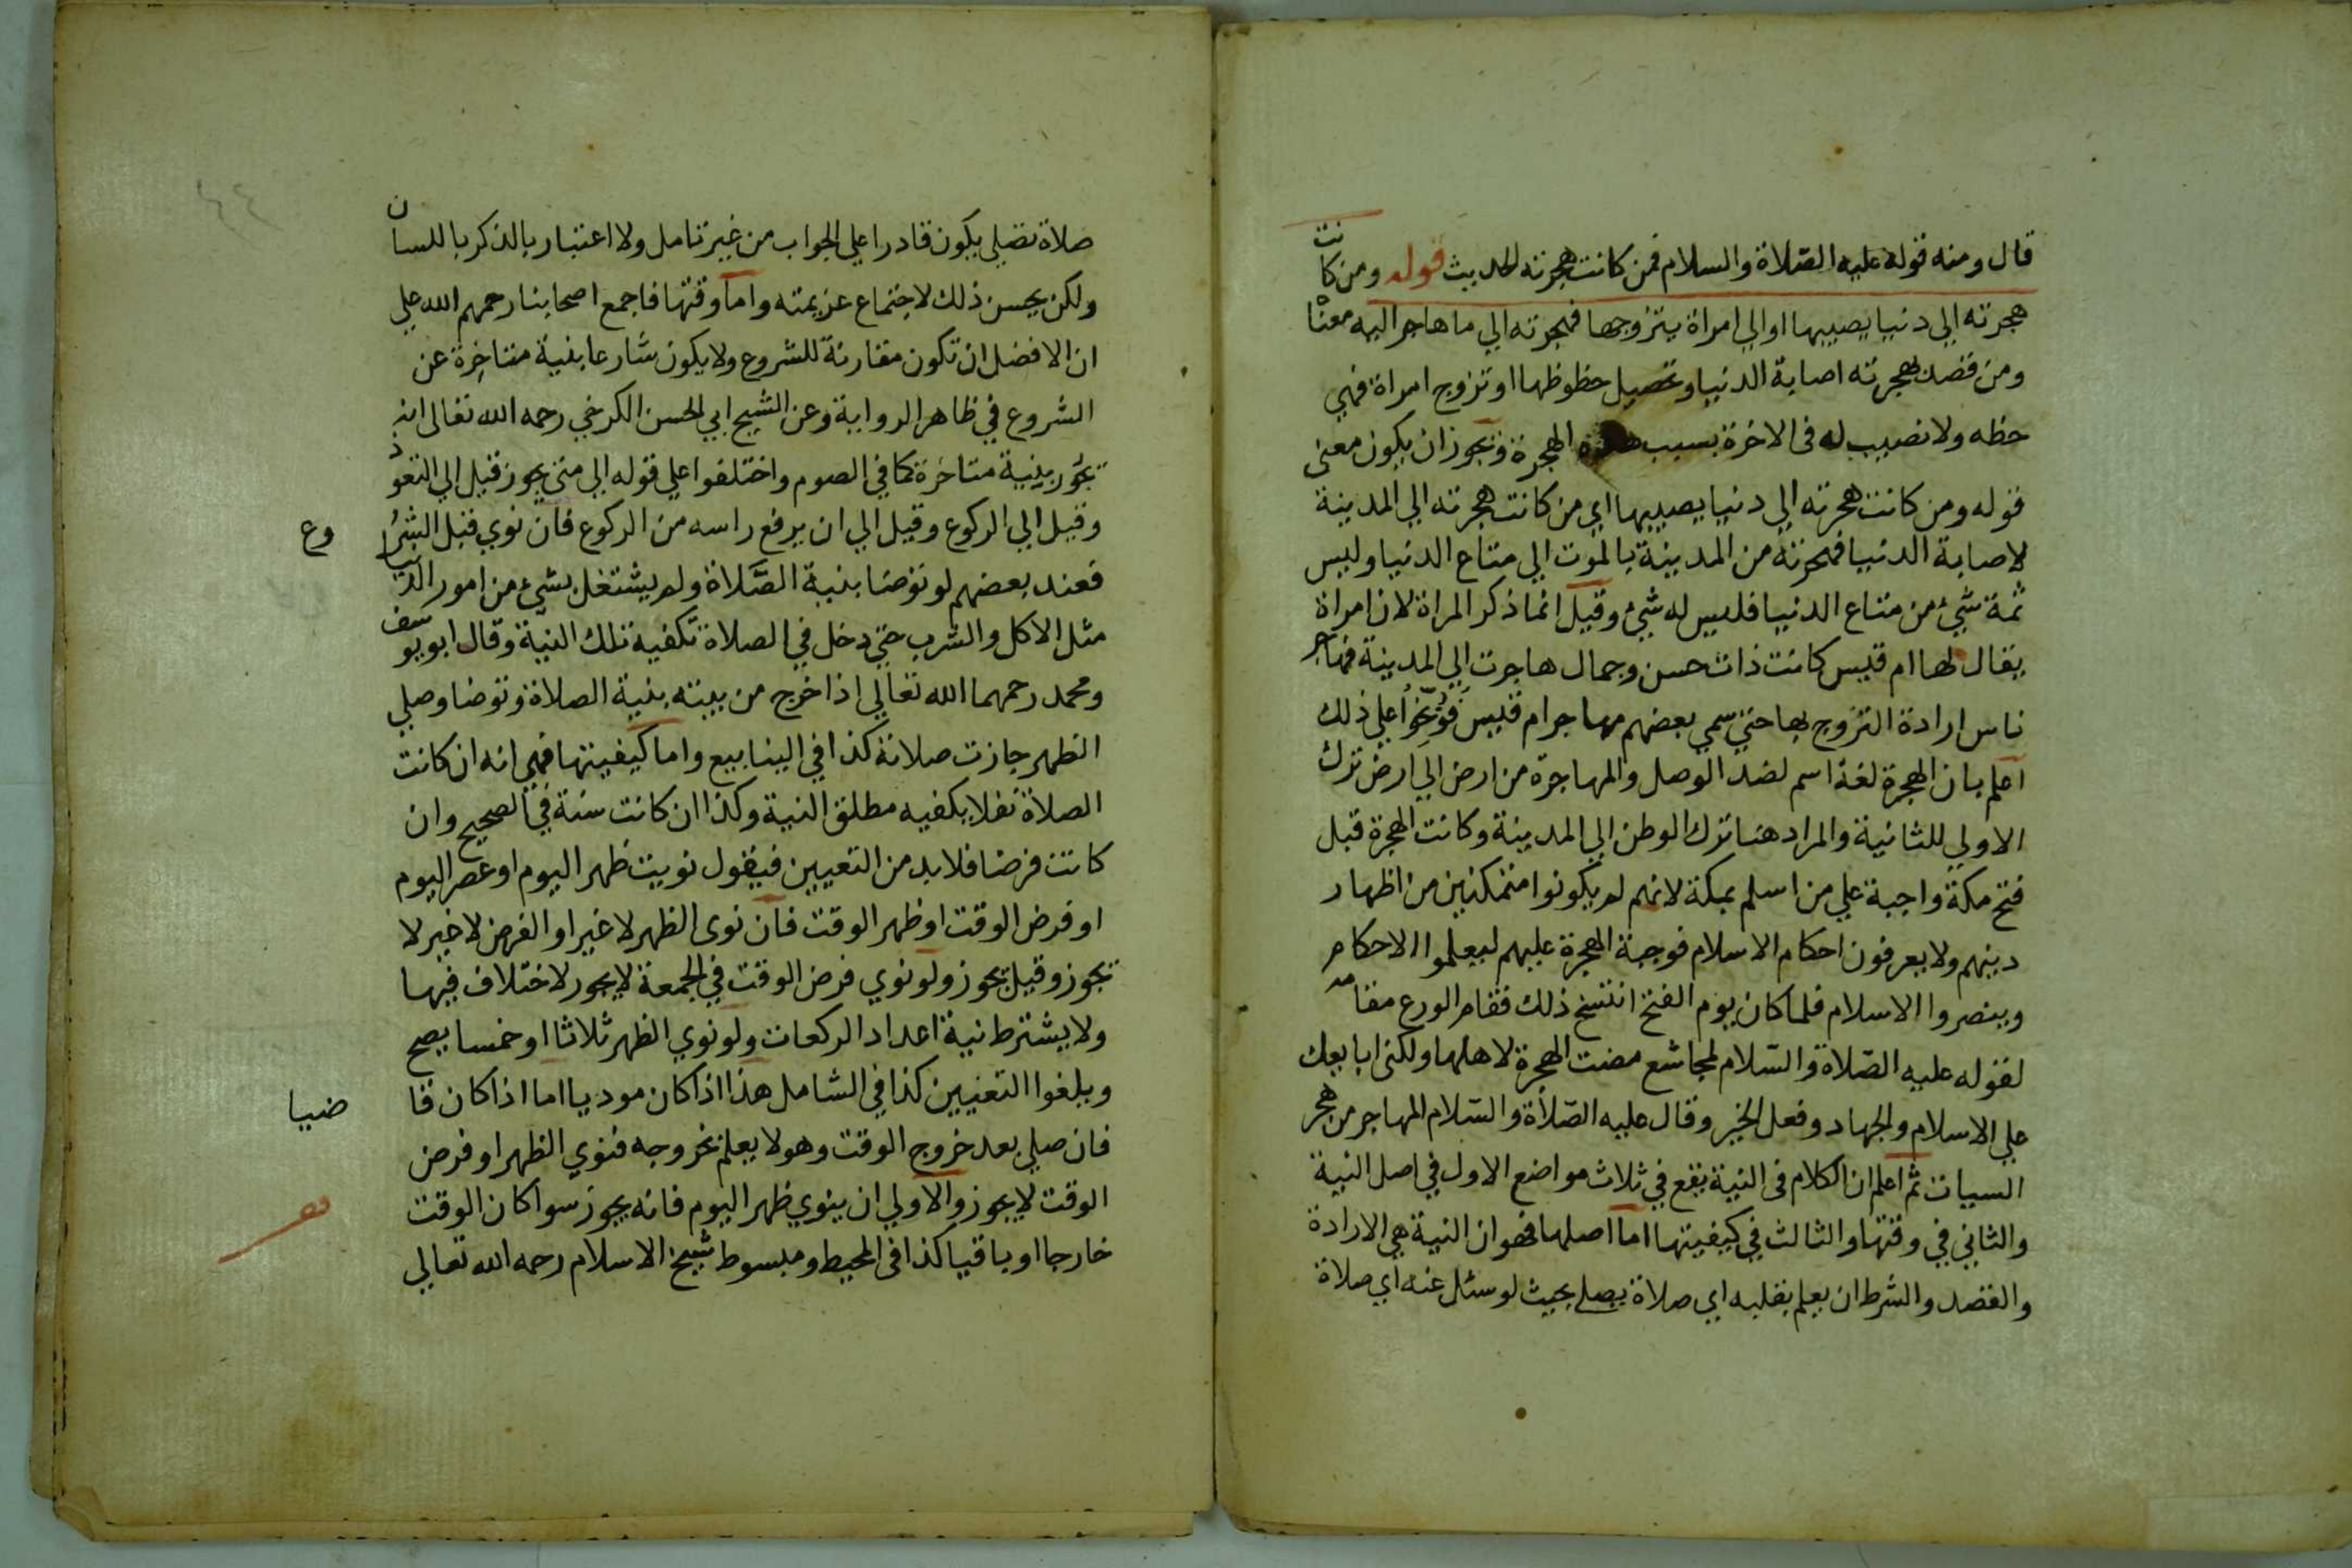 قال ومنه قوله عليه الصلاة والسلام فمن كانت هجرته الحديث قوله ومن كانت
هجرته الي دنيا يصيبها او الي امراة يتزوجها فهجرته الي ما هاجر اليه معنا
ومن قصد بهجرته اصابة الدنيا وتحصيل حظوظها او تزوج امراة فهي
حظه ولا نصيب له فى الاخرة بسبب هذه الهجرة ويجوز ان يكون معنى
قوله ومن كانت هجرته الي دنيا يصيبها اي من كانت هجرته الي المدينة
لاصابة الدنيا فهجرته من المدينة بالموت الي متاع الدنيا وليس
ثمة شئ من متاع الدنيا فليس له شئ وقيل انما ذكر المراة لان امراة
يقال لها ام قيس كانت ذات حسن وجمال هاجرت الي المدينة فهاجر
ناس ارادة التزوج بها حتي سمي بعضهم مهاجر ام قيس فوبخوا علي ذلك
اعلم بان الهجرة لغة اسم لضد الوصل والمهاجرة من ارض الي ارض ترك
الاولي للثانية والمراد هنا ترك الوطن الي المدينة وكانت الهجرة قبل
فتح مكة واجبة علي من اسلم بمكة لانهم لم يكونوا متمكنين من اظهار
دينهم ولا يعرفون احكام الاسلام فوجبة الهجرة عليهم ليعلموا الاحكام
وينصروا الاسلام فلما كان يوم الفتح انتسخ ذلك فقام الورع مقامه
لقوله عليه الصلاة والسلام لمجاشع مضت الهجرة لاهلها ولكنى ابايعك
علي الاسلام والجهاد وفعل الخير وقال عليه الصلاة والسلام المهاجر من هجر
السيات ثم اعلم ان الكلام فى النية يقع في ثلاث مواضع الاول في اصل النية
والثاني في وقتها والثالث في كيفيتها اما اصلها فهو ان النية هي الارادة
والقصد والشرط ان يعلم بقلبه اي صلاة يصلے بحيث لو سئل عنه اي صلاة
صلاة تصلي يكون قادرا علي الجواب من غير تامل ولا اعتبار بالذكر باللسان
ولكن يحسن ذلك لاجتماع عزيمته واما وقتها فاجمع اصحابنا رحمهم الله علي
ان الافضل ان تكون مقارنة للشروع ولا يكون شارعا بنية متاخرة عن
الشروع في ظاهر الرواية وعن الشيخ ابي الحسن الكرخي رحمه الله تعالى انه
يجوز بنية متاخرة كما في الصوم واختلفوا علي قوله الي متي يجوز قيل الي التعوذ
وقيل الي الركوع وقيل الي ان يرفع راسه من الركوع فان نوي قبل الشروع
فعند بعضهم لو توضا بنية الصلاة ولم يشتغل بشئ من امور الدنيا
مثل الاكل والشرب حتي دخل في الصلاة تكفيه تلك النية وقال ابو يوسف
ومحمد رحمهما الله تعالي اذا خرج من بيته بنية الصلاة وتوضا وصلي
الظهر جازت صلاته كذا في الينابيع واما كيفيتها فهي انه ان كانت
الصلاة نفلا يكفيه مطلق النية وكذا ان كانت سنة في الصحيح وان
كانت فرضا فلا بد من التعيين فيقول نويت ظهر اليوم او عصر اليوم
او فرض الوقت او ظهر الوقت فان نوى الظهر لا غير او الفرض لا غير لا
يجوز وقيل يجوز ولو نوي فرض الوقت في الجمعة لا يجوز لاختلاف فيها
ولا يشترط نية اعداد الركعات ولو نوي الظهر ثلاثا او خمسا يصح
ويلغوا التعيين كذا في الشامل هذا اذا كان موديا اما اذا كان قاضيا
فان صلي بعد خروج الوقت وهو لا يعلم بخروجه فنوي الظهر او فرض
الوقت لا يجوز والاولي ان ينوي ظهر اليوم فانه يجوز سوا كان الوقت
خارجا او باقيا كذا فى المحيط ومبسوط شيخ الاسلام رحمه الله تعالي